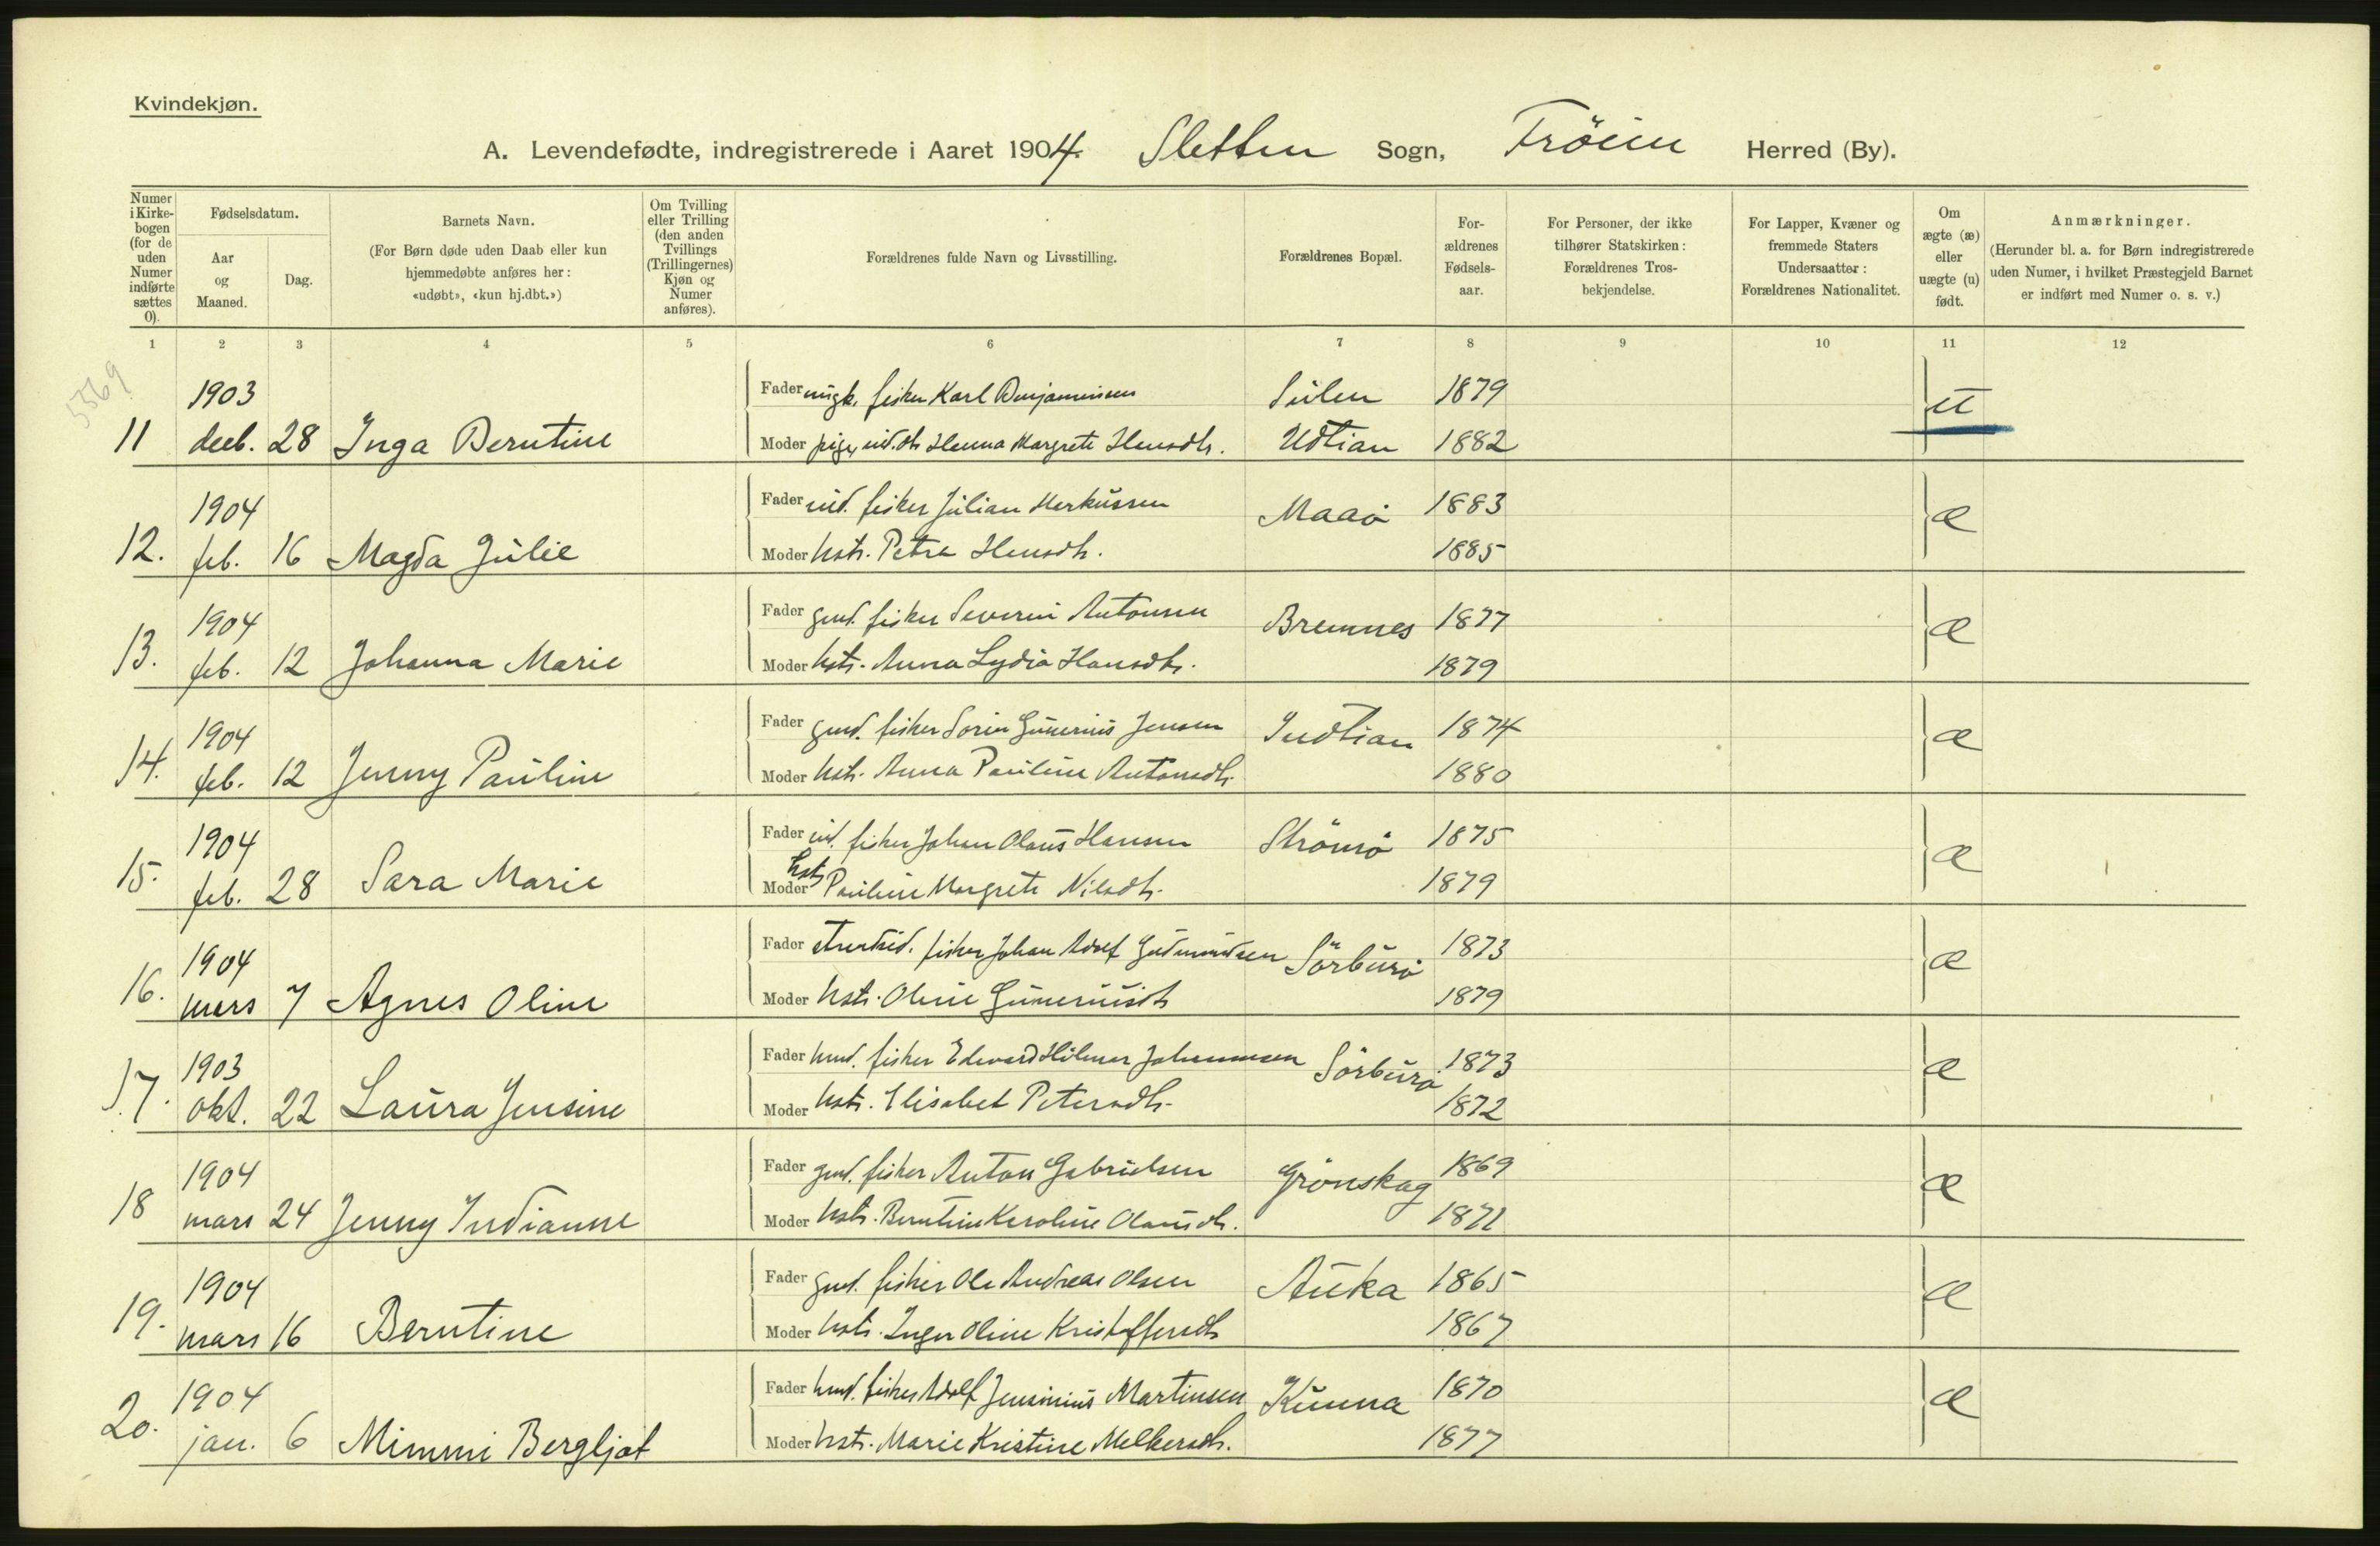 Kvindekjøn.
A. Levendefødte, indregistrerede i Aaret 1904. Sletten Sogn, Fröien Herred (By).
Numer i Kirkebogen (for de uden Numer indførte sættes 0).
Fødselsdatum.
Aar og Maaned.
Dag.
Barnets Navn.
(For Børn døde uden Daab eller kun hjemmedøbte anføres her: «udøbt», «kun hj.dbt.»)
Om Tvilling eller Trilling (den anden Tvillings (Trillingernes) Kjøn og Numer anføres).
Forældrenes fulde Navn og Livsstilling.
Forældrenes Bopæl.
Forældrenes Fødselsaar.
For Personer, der ikke tilhører Statskirken: Forældrenes Trosbekjendelse.
For Lapper, Kvæner og fremmede Staters Undersaatter: Forældrenes Nationalitet.
Om ægte (æ) eller uægte (u) født.
Anmærkninger.
(Herunder bl. a. for Børn indregistrerede uden Numer, i hvilket Præstegjeld Barnet er indført med Numer o. s. v.)
1 2 3 4 5 6 7 8 9 10 11 12
5369
1903 Fader ungk. fisker Karl Benjaminsen Sulen 1879 u
11 decb. 28 Inga Berntine Moder pige, Henna Margrete Hensdtr. Udtian 1882
1904 Fader ind. fisker Julian Markussen Maaö 1883 æ
12. feb. 16 Magda Julie Moder hstr. Petra Hensdtr. 1885
1904 Fader gmd. fisker Severin Antonsen Bremnes 1877 æ
13. feb. 12 Johanna Marie Moder hstr. Anna Lydia Hansdtr. 1879
1904 Fader gmd. fisker Sorin Gunerius Jensen Indtian 1874 æ
14. feb. 12 Jenny Pauline Moder hstr. Anna Pauline Antonsdtr. 1880
1904 Fader ind. fisker Johan Olaus Hansen Strömö 1875 æ
15. feb. 28 Sara Marie Moder hstr Pauline Margrete Nilsdtr. 1879
1904 Fader fisker Johan Adolf Gudmundsen Sörburö 1873 æ
16. mars 7 Agnes Oline Moder hstr. Oline Guneriusdtr 1879
1903 Fader hmd. fisker Edward Hilmar Johannesen Sörburö 1873 æ
17. okt. 22 Laura Jensine Moder hstr. Elisabet Petersdtr. 1872
1904 Fader gmd. fisker Anton Gabrielsen Grönskag 1869 æ
18 mars 24 Jenny Indianne Moder hstr. Berntine Karoline Olausdtr. 1871
1904 Fader gmd. fisker Ole Andreas Olsen Auka 1865 æ
19. mars 16 Berntine Moder hstr. Inger Oline Kristoffersdtr 1867
1904 Fader hmd. fisker Adolf Jensinius Martinsen Kunna 1870 æ
20. jan. 6 Mimmi Bergljot Moder hstr. Marie Kristine Melkersdtr. 1877